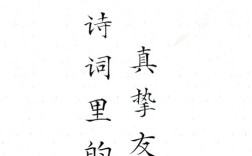 诗词里的
真挚友